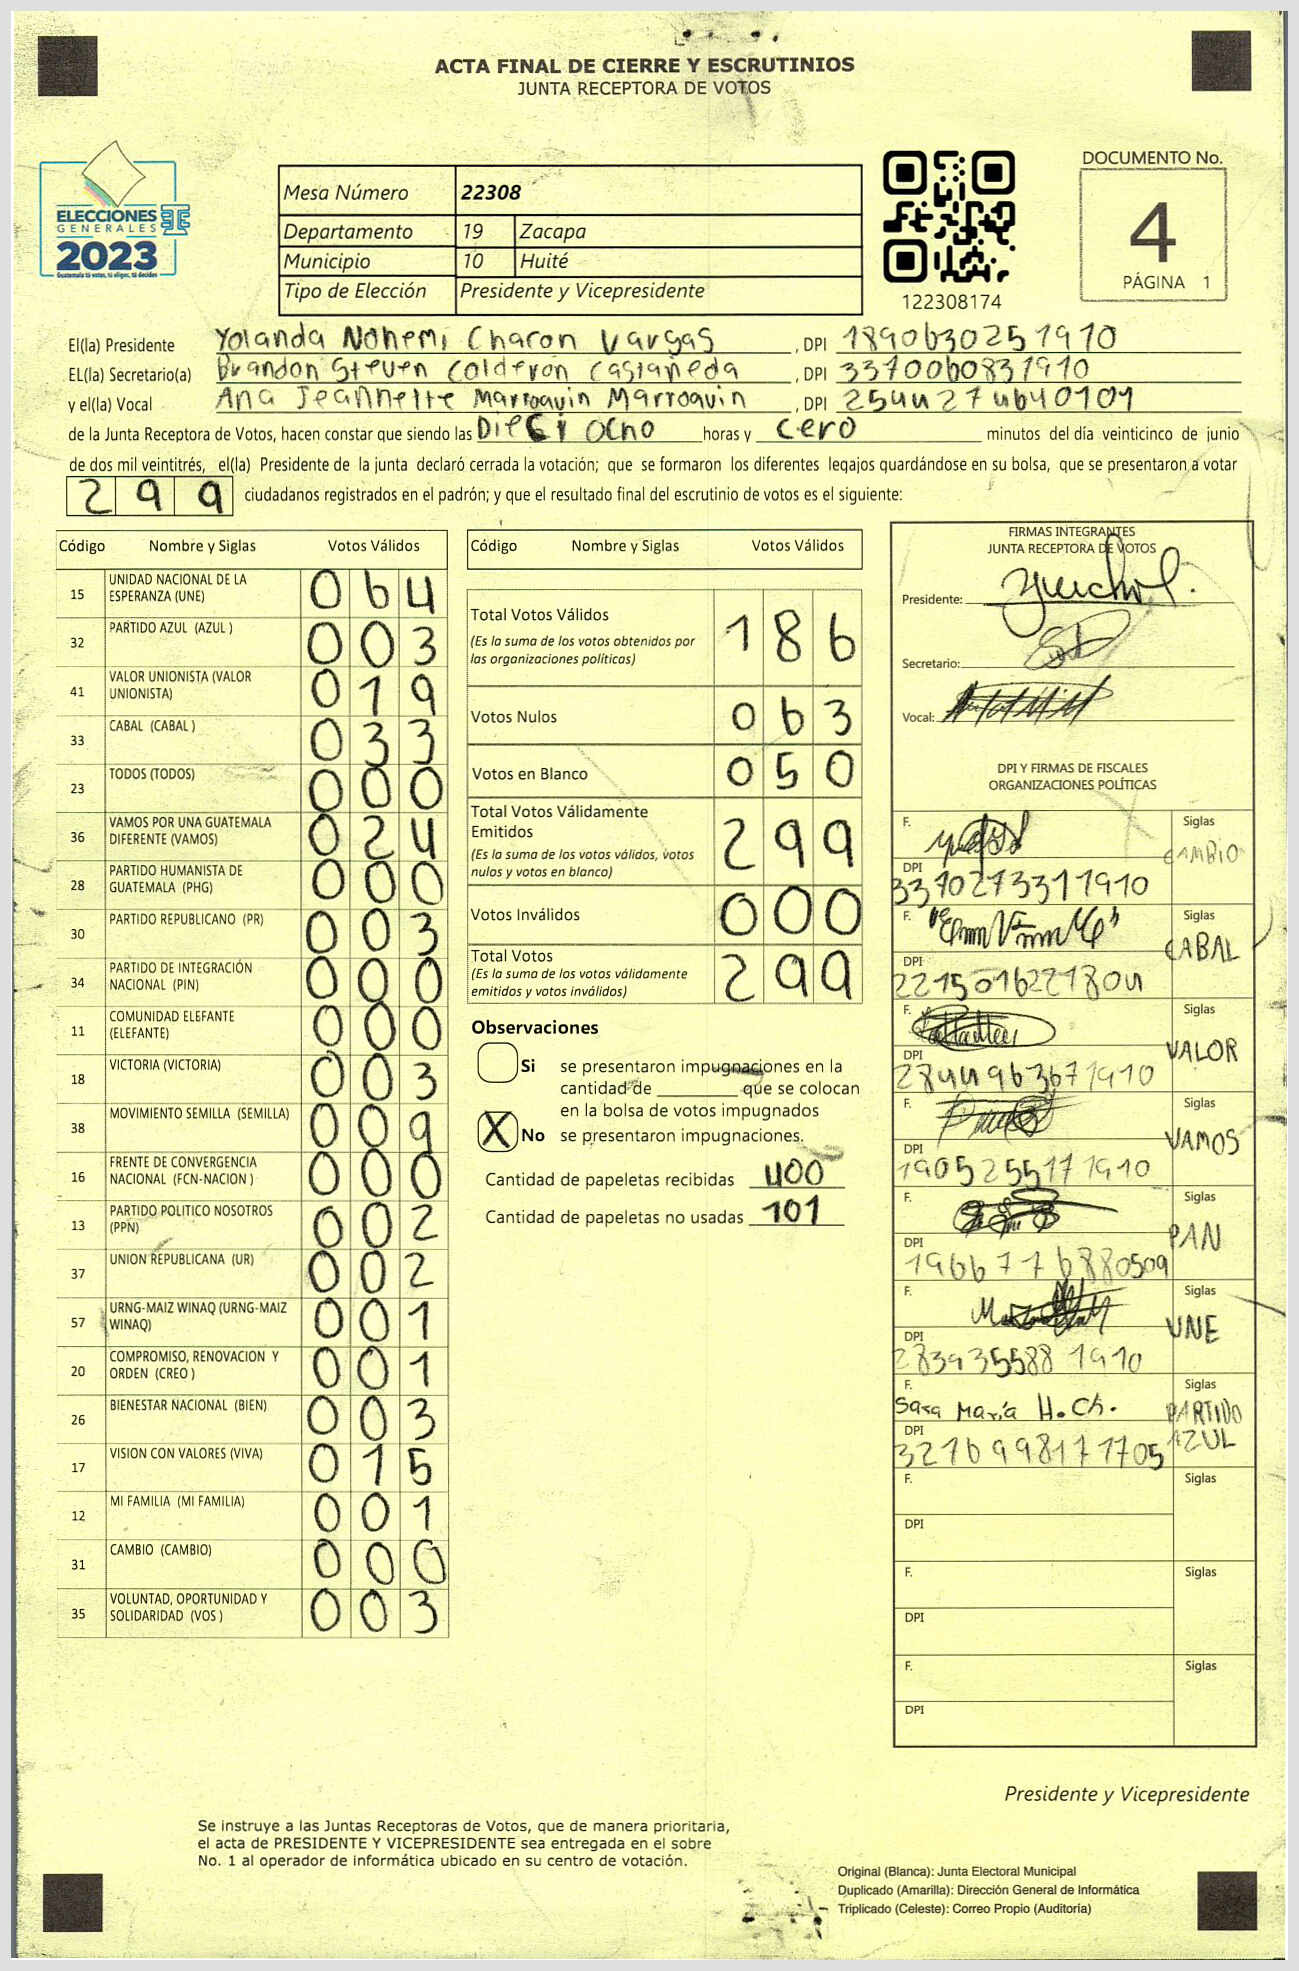 ACTA FINAL DE CIERRE Y ESCRUTINIOS
JUNTA RECEPTORA DE VOTOS
ELECCIONES
GENERALES
2023
Guatemala tú votas, tú eliges, tú decides
Mesa Número 22308
Departamento 19 Zacapa
Municipio 10 Huité
Tipo de Elección Presidente y Vicepresidente
122308174
DOCUMENTO No.
4
PÁGINA 1
El(la) Presidente Yolanda Nohemi Chacon Vargas , DPI 1890630251910
EL(la) Secretario(a) Brandon Steven Calderon Castañeda , DPI 3370060831910
y el(la) Vocal Ana Jeannette Marroquin Marroquin , DPI 2544274640101
de la Junta Receptora de Votos, hacen constar que siendo las Dieci ocho horas y cero minutos del día veinticinco de junio
de dos mil veintitrés, el(la) Presidente de la junta declaró cerrada la votación; que se formaron los diferentes legajos guardándose en su bolsa, que se presentaron a votar
299 ciudadanos registrados en el padrón; y que el resultado final del escrutinio de votos es el siguiente:
Código Nombre y Siglas Votos Válidos
15 UNIDAD NACIONAL DE LA ESPERANZA (UNE) 064
32 PARTIDO AZUL (AZUL ) 003
41 VALOR UNIONISTA (VALOR UNIONISTA) 019
33 CABAL (CABAL ) 033
23 TODOS (TODOS) 000
36 VAMOS POR UNA GUATEMALA DIFERENTE (VAMOS) 024
28 PARTIDO HUMANISTA DE GUATEMALA (PHG) 000
30 PARTIDO REPUBLICANO (PR) 003
34 PARTIDO DE INTEGRACIÓN NACIONAL (PIN) 000
11 COMUNIDAD ELEFANTE (ELEFANTE) 000
18 VICTORIA (VICTORIA) 003
38 MOVIMIENTO SEMILLA (SEMILLA) 009
16 FRENTE DE CONVERGENCIA NACIONAL (FCN-NACION ) 000
13 PARTIDO POLITICO NOSOTROS (PPN) 002
37 UNION REPUBLICANA (UR) 002
57 URNG-MAIZ WINAQ (URNG-MAIZ WINAQ) 001
20 COMPROMISO, RENOVACION Y ORDEN (CREO ) 001
26 BIENESTAR NACIONAL (BIEN) 003
17 VISION CON VALORES (VIVA) 015
12 MI FAMILIA (MI FAMILIA) 001
31 CAMBIO (CAMBIO) 000
35 VOLUNTAD, OPORTUNIDAD Y SOLIDARIDAD (VOS ) 003
Código Nombre y Siglas Votos Válidos
Total Votos Válidos 186
(Es la suma de los votos obtenidos por
las organizaciones políticas)
Votos Nulos 063
Votos en Blanco 050
Total Votos Válidamente
Emitidos 299
(Es la suma de los votos válidos, votos
nulos y votos en blanco)
Votos Inválidos 000
Total Votos 299
(Es la suma de los votos válidamente
emitidos y votos inválidos)
Observaciones
Si se presentaron impugnaciones en la
cantidad de ________ que se colocan
en la bolsa de votos impugnados
X No se presentaron impugnaciones.
Cantidad de papeletas recibidas 400
Cantidad de papeletas no usadas 101
FIRMAS INTEGRANTES
JUNTA RECEPTORA DE VOTOS
Presidente:
Secretario:
Vocal:
DPI Y FIRMAS DE FISCALES
ORGANIZACIONES POLÍTICAS
F. Siglas CAMBIO
DPI 3370273311910
F. Siglas CABAL
DPI 2215016221804
F. Siglas VALOR
DPI 2844963671910
F. Siglas VAMOS
DPI 1905255171910
F. Siglas PAN
DPI 1966776880509
F. Siglas UNE
DPI 2839355881910
F. Sara María H.Ch. Siglas PARTIDO AZUL
DPI 3216998171705
F. Siglas
DPI
F. Siglas
DPI
F. Siglas
DPI
Presidente y Vicepresidente
Se instruye a las Juntas Receptoras de Votos, que de manera prioritaria,
el acta de PRESIDENTE Y VICEPRESIDENTE sea entregada en el sobre
No. 1 al operador de informática ubicado en su centro de votación.
Original (Blanca): Junta Electoral Municipal
Duplicado (Amarilla): Dirección General de Informática
Triplicado (Celeste): Correo Propio (Auditoría)